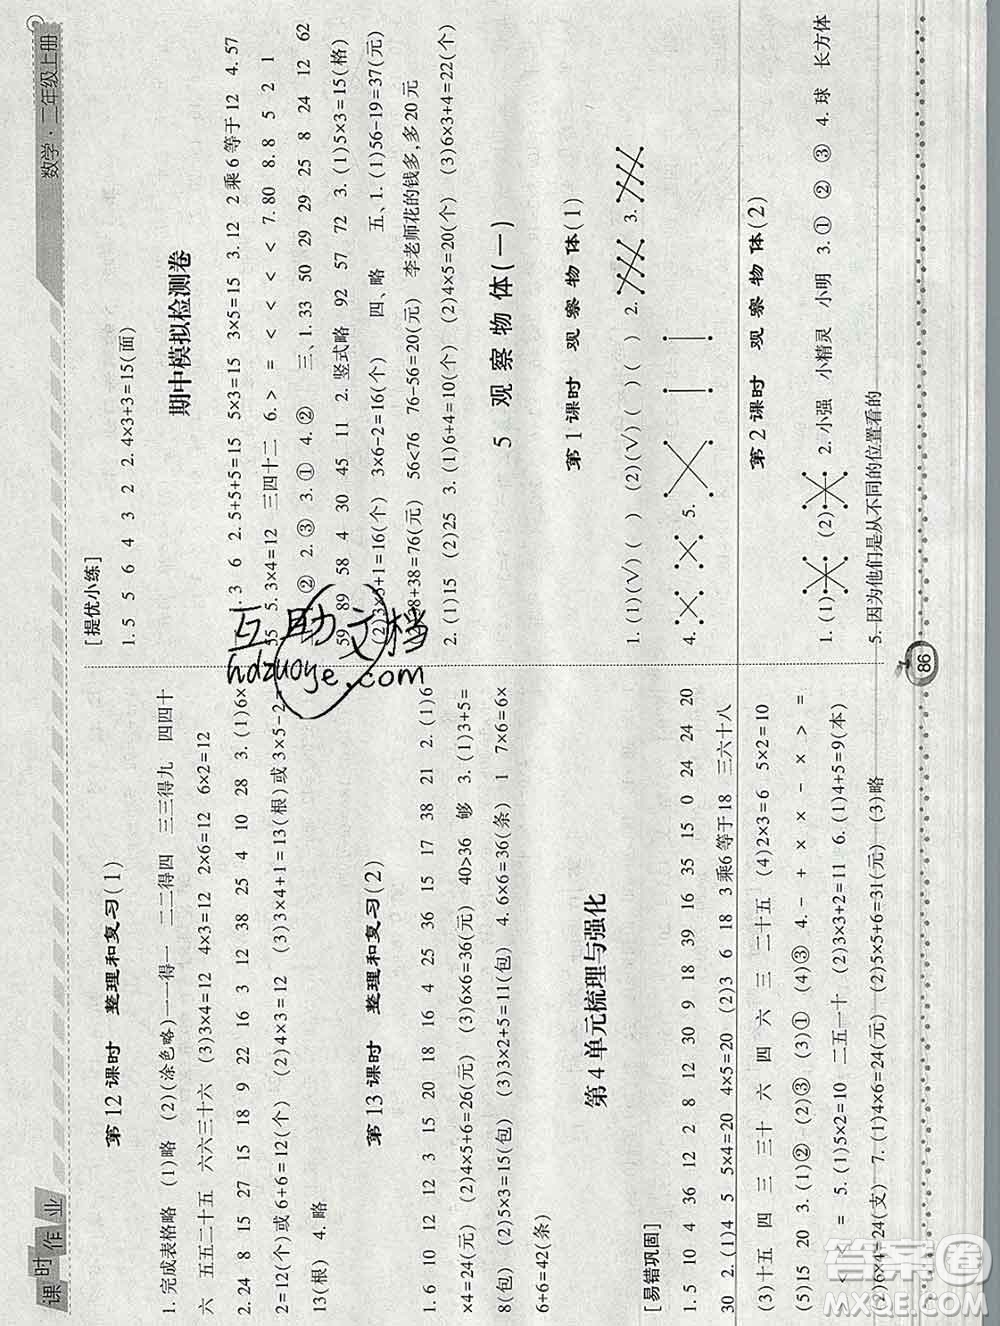 课时作业
数学·二年级上册
第12课时 整理和复习(1)
1. 完成表格略 (1)略 (2)(涂色略)一一得一 二二得四 三三得九 四四十
六 五五二十五 六六三十六 (3)3×4=12 4×3=12 2×6=12 6×2=12
2. 24 8 15 27 15 18 9 22 16 3 12 38 25 4 10 28 3. (1)6×
2=12(个)或6+6=12(个) (2)4×3=12 (3)3×4+1=13(根)或3×5-2=
13(根) 4. 略
第13课时 整理和复习(2)
1. 6 10 12 12 3 15 20 18 16 4 25 36 15 17 38 21 2. (1)6
×4=24(元) (2)4×5+6=26(元) (3)6×6=36(元) 40>36 够 3. (1)3+5=
8(包) (2)5×3=15(包) (3)3×2+5=11(包) 4. 6×6=36(条) 1 7×6=6×
6+6=42(条)
第4单元梳理与强化
[易错巩固]
1. 5 10 4 36 12 8 12 30 9 18 39 16 35 15 0 24 24 20
30 2. (1)4 5 5×4=20 4×5=20 (2)3 6 18 3乘6等于18 三六十八
(3)十五 四 三 三十 六 四 六 三 二十五 (4)2×3=6 5×2=10
(5)15 20 3. (1)② (2)③ (3)① (4)③ 4. - + × × - × > =
< = 5. (1)5×2=10 二五一十 (2)3×3+2=11 6. (1)4+5=9(本)
(2)6×4=24(支) 7. (1)4×6=24(元) (2)5×5+6=31(元) (3)略
[提优小练]
1. 5 5 6 4 3 2 2. 4×3+3=15(面)
期中模拟检测卷
3 6 2. 5+5+5=15 5×3=15 3×5=15 3. 12 2乘6等于12 4. 57
55 5. 3×4=12 三四十二 6. > = < < < < 7. 80 8. 8 5 2 1
② 2. ③ 3. ① 4. ② 三、1. 33 50 29 29 25 8 24 12 62
59 89 58 4 30 45 11 2. 竖式略 92 57 72 3. (1)5×3=15(格)
(2)3×5+1=16(个) 3×6-2=16(个) 四、略 五、1. (1)56-19=37(元)
8+38=76(元) 56<76 76-56=20(元) 李老师花的钱多,多20元
2. (1)15 (2)25 3. (1)6+4=10(个) (2)4×5=20(个) (3)6×3+4=22(个)
5 观察物体(一)
第1课时 观察物体(1)
1. (1)(√)( ) (2)(√)( )( ) 2. 3.
4. 5.
第2课时 观察物体(2)
1. (1) (2) 2. 小强 小精灵 小明 3. ① ② ③ 4. 球 长方体
5. 因为他们是从不同的位置看的
86
互助文档
hdzuoye.com
答案圈
MXQE.COM